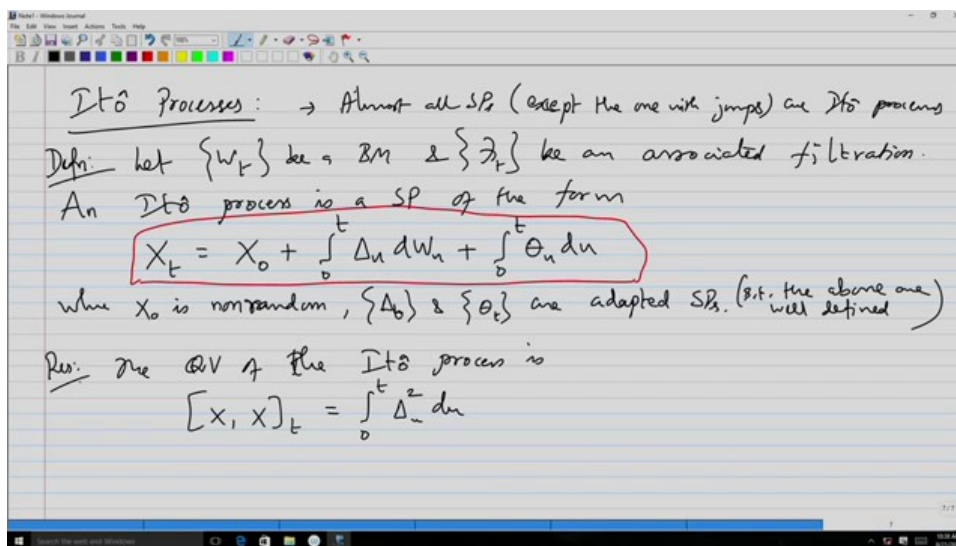 Note1 - Windows Journal
File Edit View Insert Actions Tools Help
Itô Processes: → Almost all SPs (except the one with jumps) are Itô process
Defn: Let {W_t} be a BM & {ℱ_t} be an associated filtration.
An Itô process is a SP of the form
X_t = X_0 + ∫_0^t Δ_u dW_u + ∫_0^t Θ_u du
where X_0 is nonrandom, {Δ_t} & {Θ_t} are adapted SPs. (s.t. the above are well defined)
Res: The QV of the Itô process is
[X, X]_t = ∫_0^t Δ_u^2 du
7/7
7
Search the web and Windows